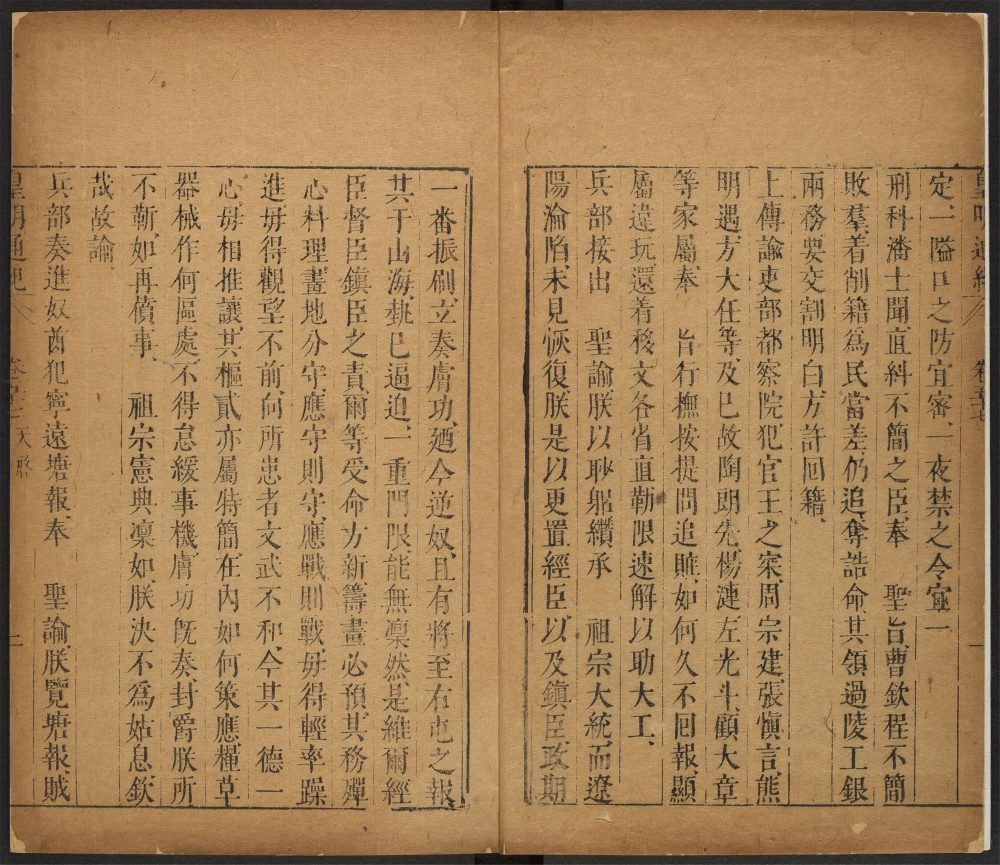 皇明通紀　卷五十
定一隘口之防宜審一夜禁之令宜一
刑科潘士聞直糾不簡之臣奉　聖旨曹欽程不簡
敗羣着削籍爲民當差仍追奪誥命其領過陵工銀
兩務要交割明白方許回籍
上傳諭吏部都察院犯官王之寀周宗建張愼言熊
明遇方大任等及已故陶朗先楊漣左光斗顧大章
等家屬奉　旨行撫按提問追贓如何久不回報顯
屬違玩還着移文各省直勒限速解以助大工
兵部接出　聖諭朕以眇躬纘承　祖宗大統而遼
陽淪陷未見恢復朕是以更置經臣以及鎮臣政期
一番振刷立奏膚功廼今逆奴且有將至右屯之報
其于山海執已逼迫一重門限能無凜然是維爾經
臣督臣鎮臣之責爾等受命方新籌畫必預其務殫
心料理畫地分守應守則守應戰則戰毋得輕率躁
進毋得觀望不前向所患者文武不和今其一德一
心毋相推讓其樞貳亦屬特簡在內如何策應糧草
器械作何區處不得怠緩事機膚功旣奏封爵朕所
不靳如再僨事　祖宗憲典凜如朕決不爲姑息欽
哉故諭
兵部奏進奴酋犯寧遠塘報奉　聖諭朕覽塘報賊
皇明通紀　卷　天啓　上